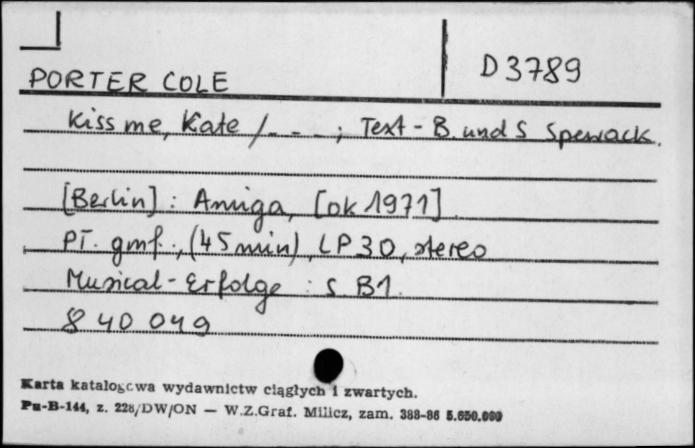 D3789
PORTER COLE
Kiss me, Kate / - - - ; Text - B. und S Spewack.
[Berlin] : Amiga, [ok 1971]
PŁ. gmf., (45 min), LP 30, stereo
Musical-Erfolge : S. B1.
8 40 049
Karta katalogowa wydawnictw ciągłych i zwartych.
Pu-B-144, z. 228/DW/ON — W.Z.Graf. Milicz, zam. 388-86 5.650.000